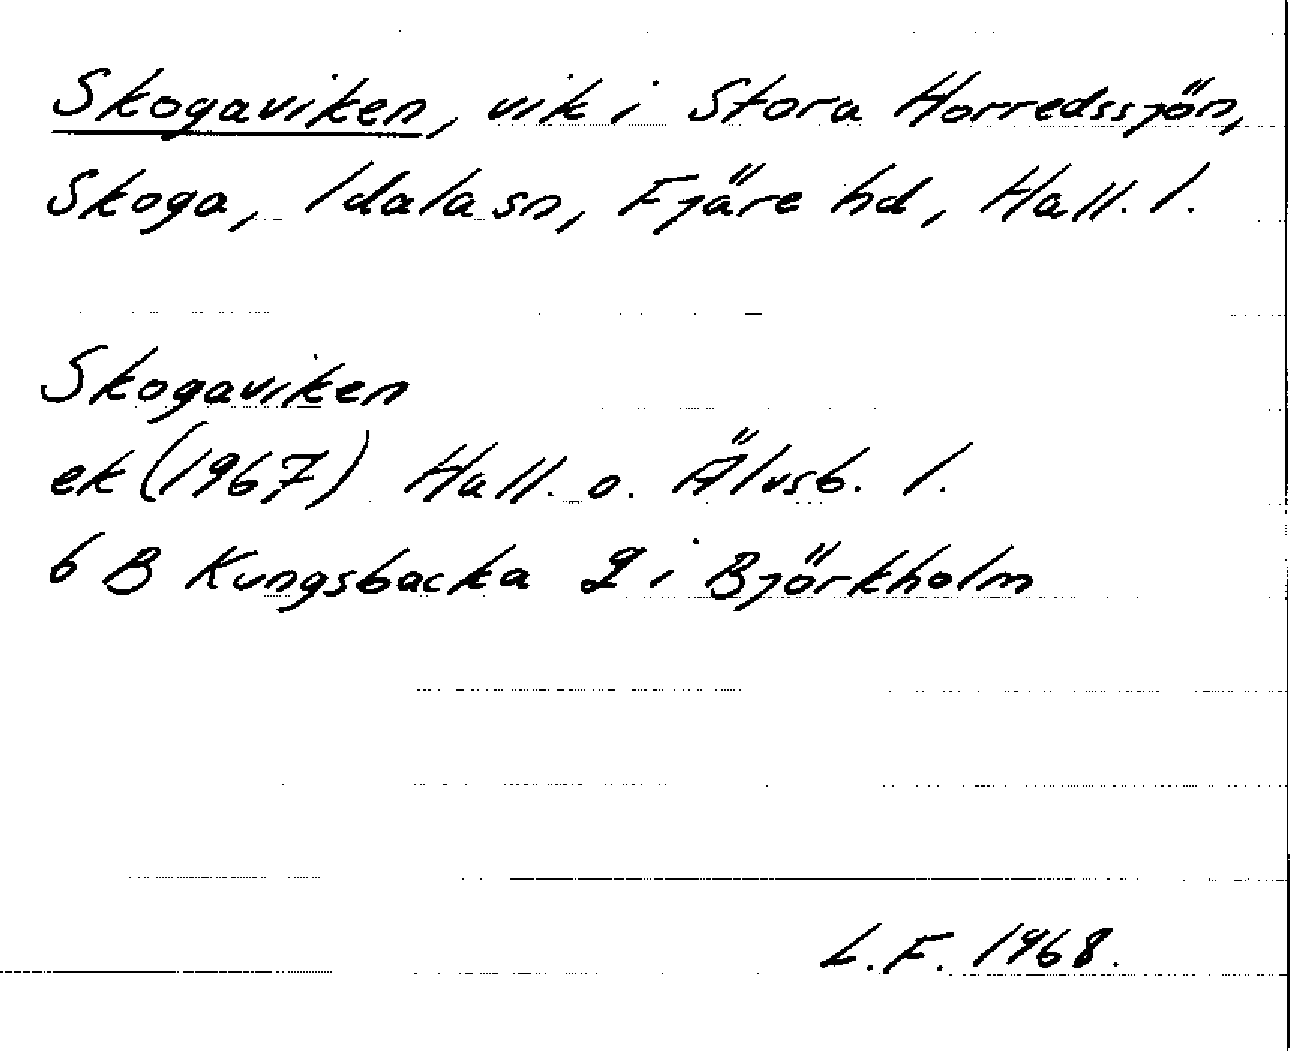 Skogaviken, vik i Stora Horredssjön,
Skoga, Idala sn, Fjäre hd, Hall. l.
Skogaviken
ek (1967) Hall. o. Älvsb. l.
6 B Kungsbacka 2 i Björkholm
L.F. 1968.